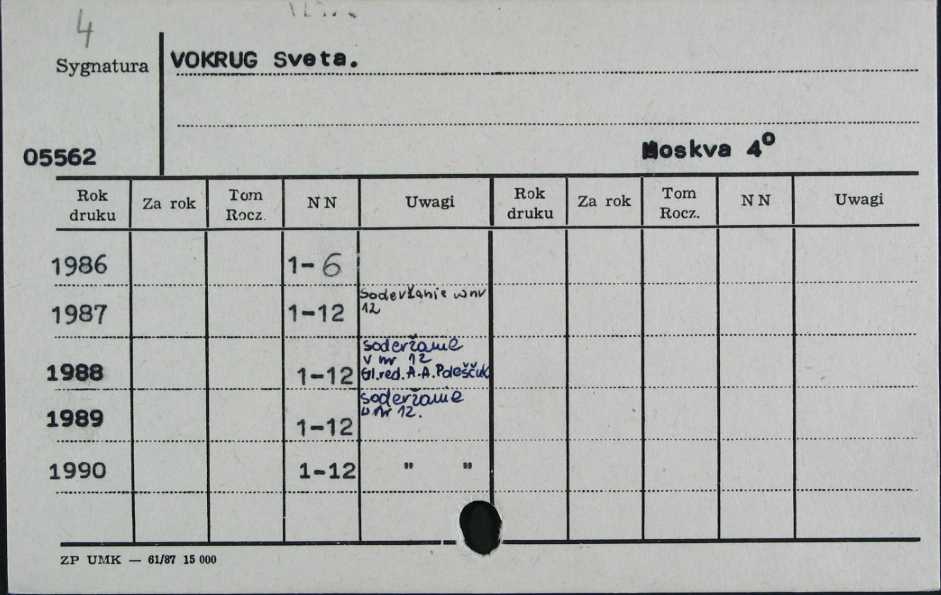 4
Sygnatura VOKRUG Sveta.
05562 Moskva 4º
Rok druku Za rok Tom Rocz. NN Uwagi Rok druku Za rok Tom Rocz. NN Uwagi
1986 1-6
1987 1-12 soderžanie w nr
12
1988 1-12 soderžanie
v nr 12
Gl.red. A.A.Poleščuk
1989 1-12 soderžanie
v nr 12.
1990 1-12 " "
ZP UMK — 61/87 15 000